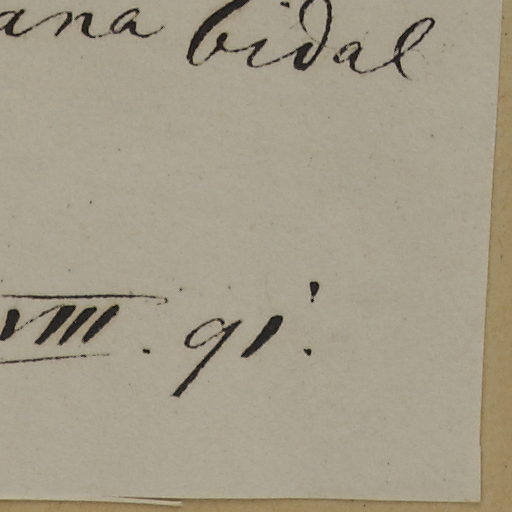 ana bidal
VIII. 91.